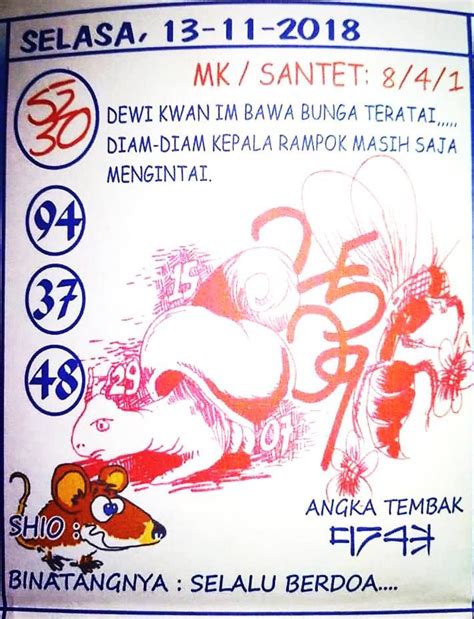 SELASA, 13-11-2018
MK / SANTET: 8/4/1
DEWI KWAN IM BAWA BUNGA TERATAI,,,,,
DIAM-DIAM KEPALA RAMPOK MASIH SAJA
MENGINTAI.
94
37
48
15
29
07
SHIO :
ANGKA TEMBAK
BINATANGNYA : SELALU BERDOA....